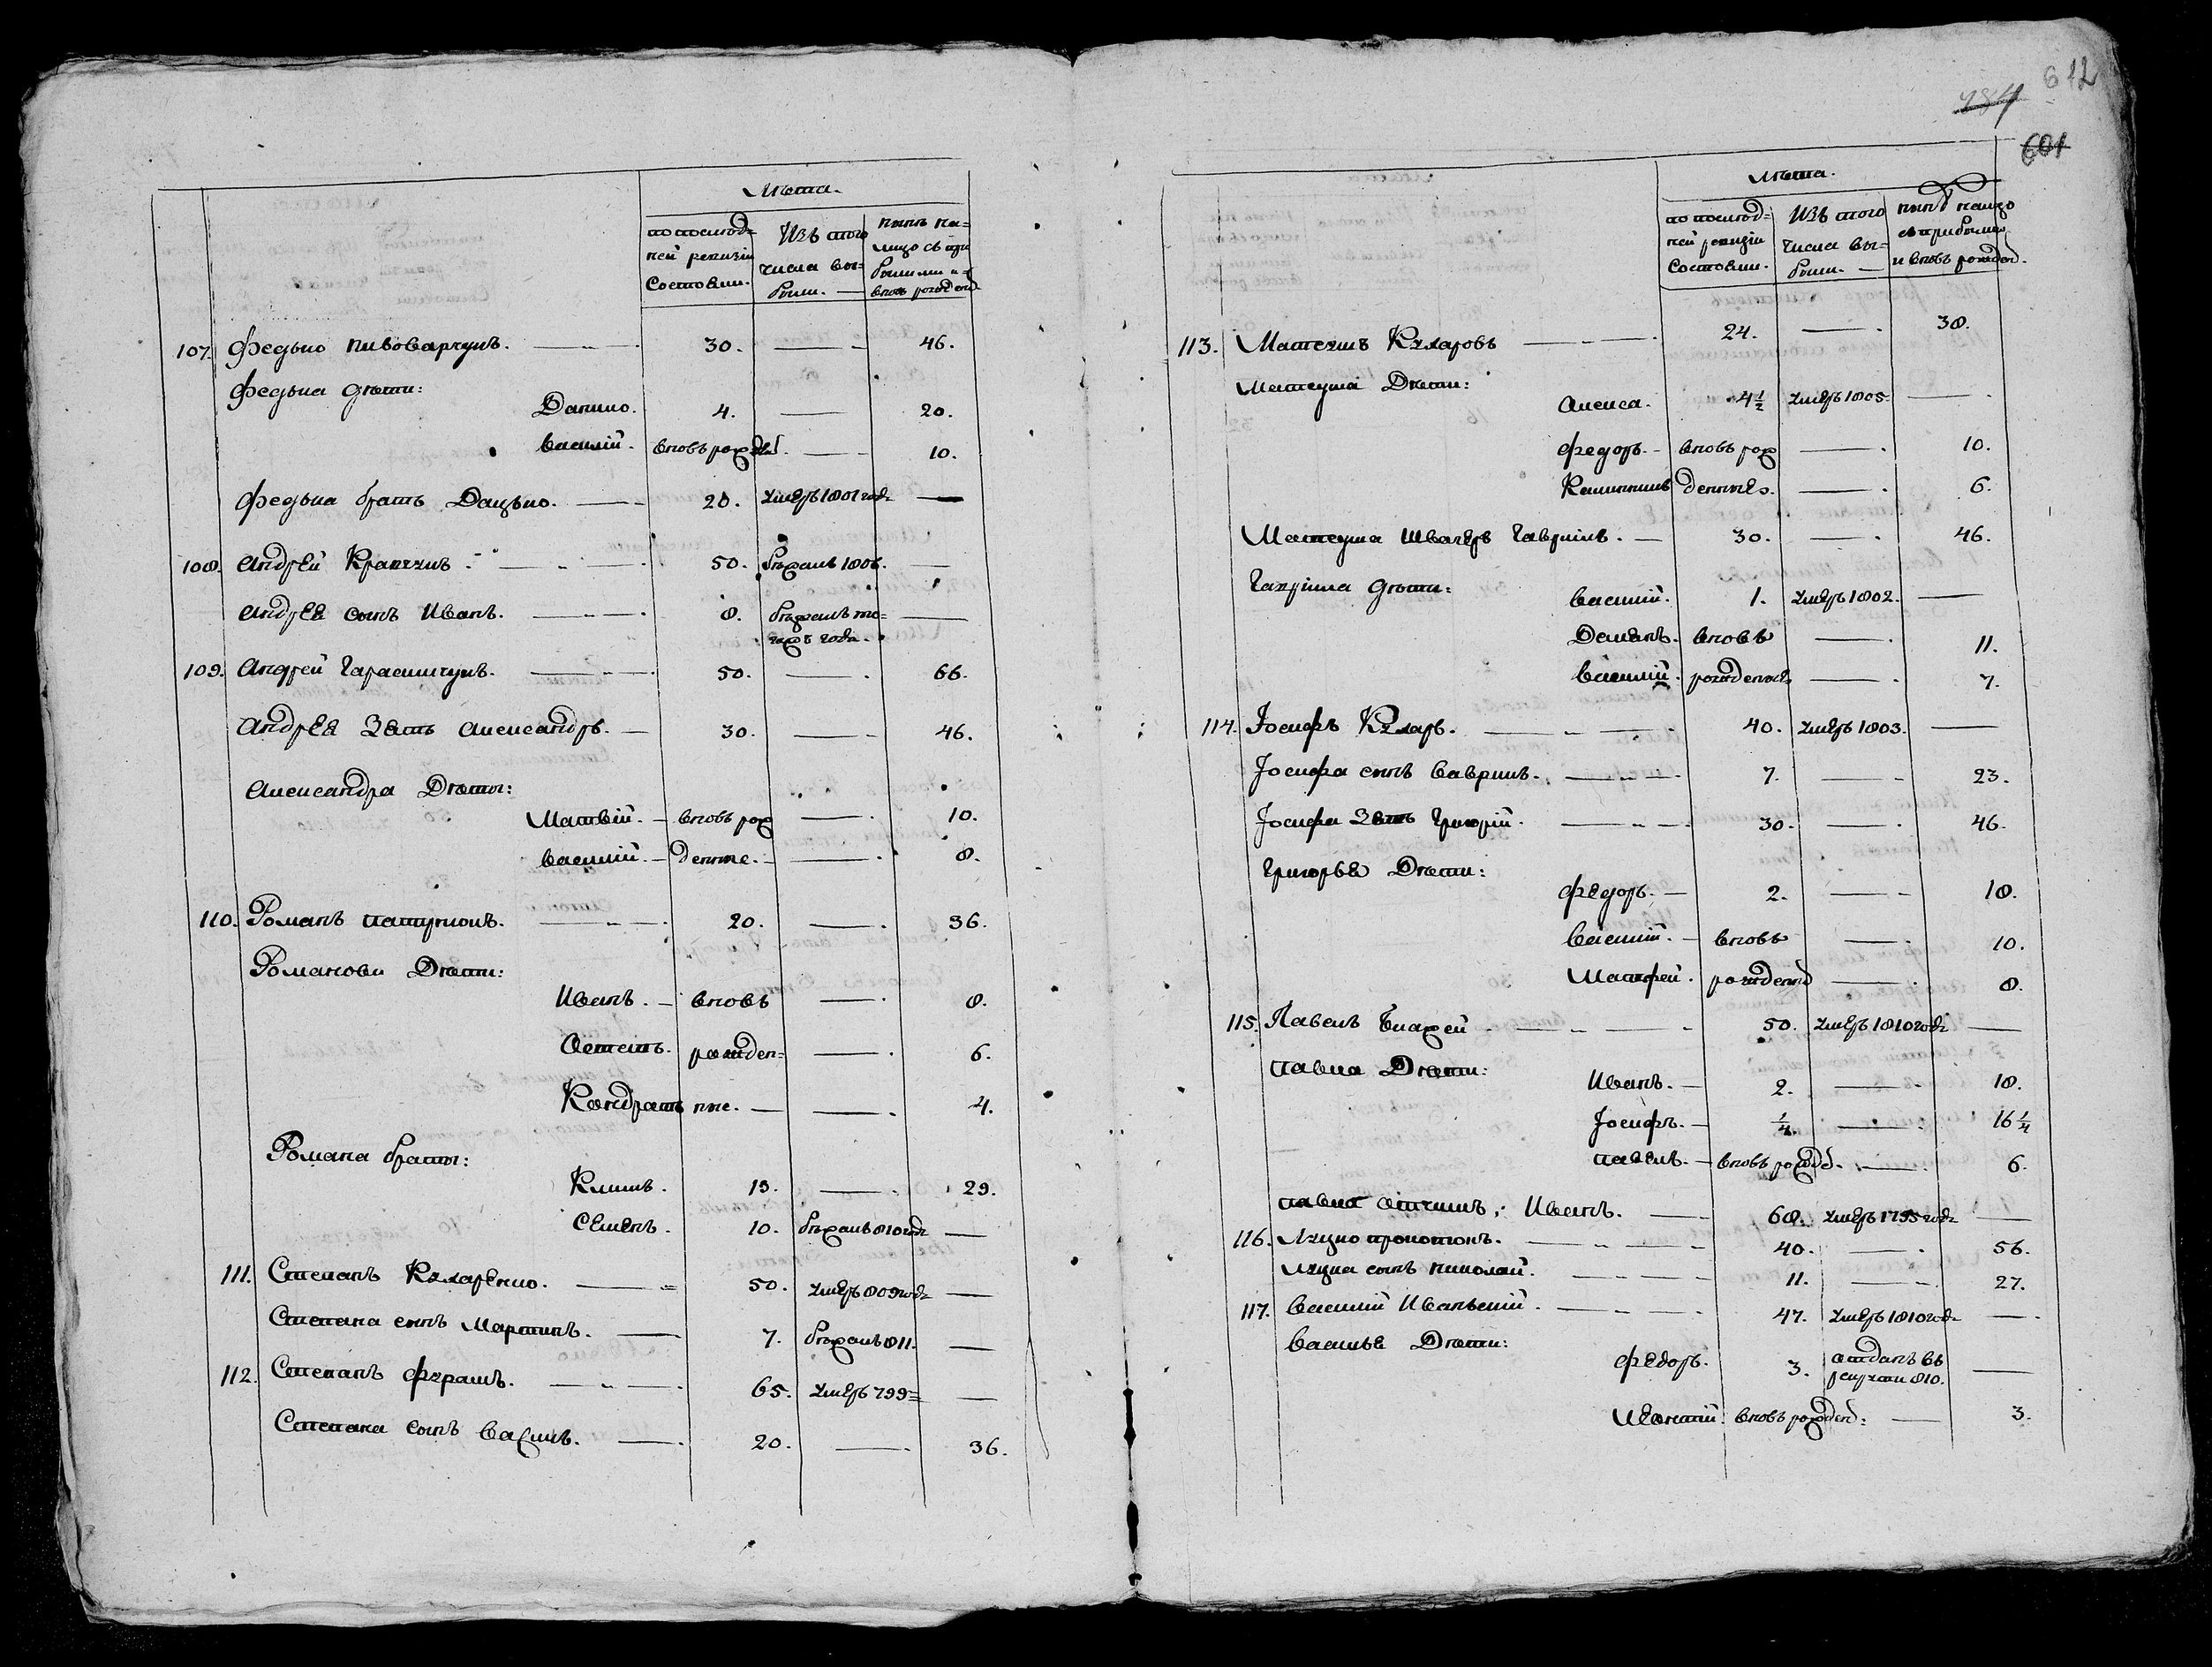 612
284
601
Лѣта.
по послѣд=
ней ревизіи
состояли.
Изъ того
числа вы=
были. —
нынѣ на=
лицо съ при
былыми и
вновь рожденн
107. Федько Пивоварчукъ. 30. — 46.
Федька дѣти:
Данило. 4. — 20.
Василій. вновь рожд. — 10.
Федька братъ Дацько. — 20. умеръ 1801 года —
108. Андрей Крапчукъ. — 50. бѣжалъ 1806. —
Андрея сынъ Иванъ. — 8. бѣжалъ то=
гожъ года. —
109. Андрей Гарасимчукъ. — 50. — 66.
Андрея Зять Александръ. — 30. — 46.
Александра Дѣти:
Матвій. — вновь рож — 10.
Василій. — денные. — 8.
110. Романъ Патрикокъ. — 20. — 36.
Романови Дѣти:
Иванъ. — вновь — 8.
Остепъ. рожден= — 6.
Кондратъ ные. — 4.
Романа браты:
Климъ. 13. — 29.
Семенъ. 10. бѣжалъ 810 года —
111. Степанъ Кухаренко. — 50. умеръ 809 года —
Степана сынъ Мартинъ. — 7. бѣжалъ 811. —
112. Степанъ Фурашъ. — 65. умеръ 799 = —
Степана сынъ Василь. — 20. — 36.
Лѣта.
по послѣд=
ней ревизіи
состояли.
Изъ того
числа вы=
были. —
нынѣ налицо
съ прибылыми
и вновь рожден.
113. Матеушъ Кухаровъ — 24. — 38.
Матеуша Дѣти:
Алекса. 4 1/2 умеръ 1805. —
Федоръ. — вновь рож — 10.
Калиникъ денные. — 6.
Матеуша Швагеръ Гаврилъ. — 30. — 46.
Гаврила дѣти:
Василій. 1. умеръ 1802. —
Демянъ. вновь — 11.
Василій. рожденные — 7.
114. Іосифъ Кухаръ. — 40. умеръ 1803. —
Іосифа сынъ Гаврилъ. — 7. — 23.
Іосифа Зять Григорій. — 30. — 46.
Григорья Дѣти:
Федоръ. — 2. — 18.
Василій. — вновь — 10.
Матфей. рожденн — 8.
115. Павелъ Блажей — 50. умеръ 1810 года —
Павла Дѣти:
Иванъ. — 2. — 18.
Іосифъ. — 1/4. — 16 1/4
Павелъ. — вновь рожд. — 6.
Павла отчимъ, Иванъ. — 68. умеръ 1795 года —
116. Луцко Прокопокъ. — 40. — 56.
Луцка сынъ Николай. — 11. — 27.
117. Василій Иванькій. — 47. умеръ 1810 года —
Василья Дѣти:
Федоръ. 3. отданъ въ
рекруты 810. —
Леонтій. вновь рожден: — 3.